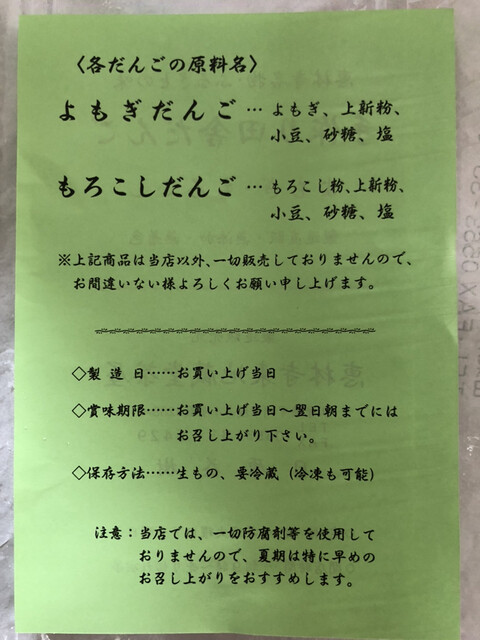 〈各だんごの原料名〉
よもぎだんご…よもぎ、上新粉、
小豆、砂糖、塩
もろこしだんご…もろこし粉、上新粉、
小豆、砂糖、塩
※上記商品は当店以外、一切販売しておりませんので、
お間違いない様よろしくお願い申し上げます。
◇製造日……お買い上げ当日
◇賞味期限……お買い上げ当日〜翌日朝までには
お召し上がり下さい。
◇保存方法……生もの、要冷蔵（冷凍も可能）
注意：当店では、一切防腐剤等を使用して
おりませんので、夏期は特に早めの
お召し上がりをおすすめします。